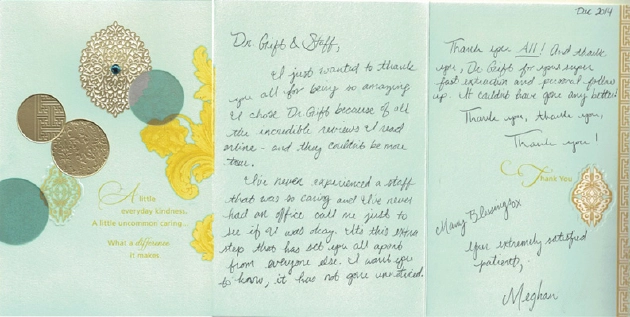 A little
everyday kindness.
A little uncommon caring...
What a difference
it makes
Dr. Grift & Staff,
I just wanted to thank
you all for being so amazing.
I chose Dr. Grift because of all
the incredible reviews I read
online - and they couldn't be more
true.
I've never experienced a staff
that was so caring and I've never
had an office call me just to
see if I was okay. It's this extra
step that has set you all apart
from everyone else. I want you
to know, it has not gone unnoticed.
Dec 2014
Thank you All! And thank
you, Dr Grift for your super
fast extraction and personal follow
up. It couldn't have gone any better!
Thank you, thank you,
Thank you!
Thank You
Many Blessings ox
Your extremely satisfied
patient,
Meghan